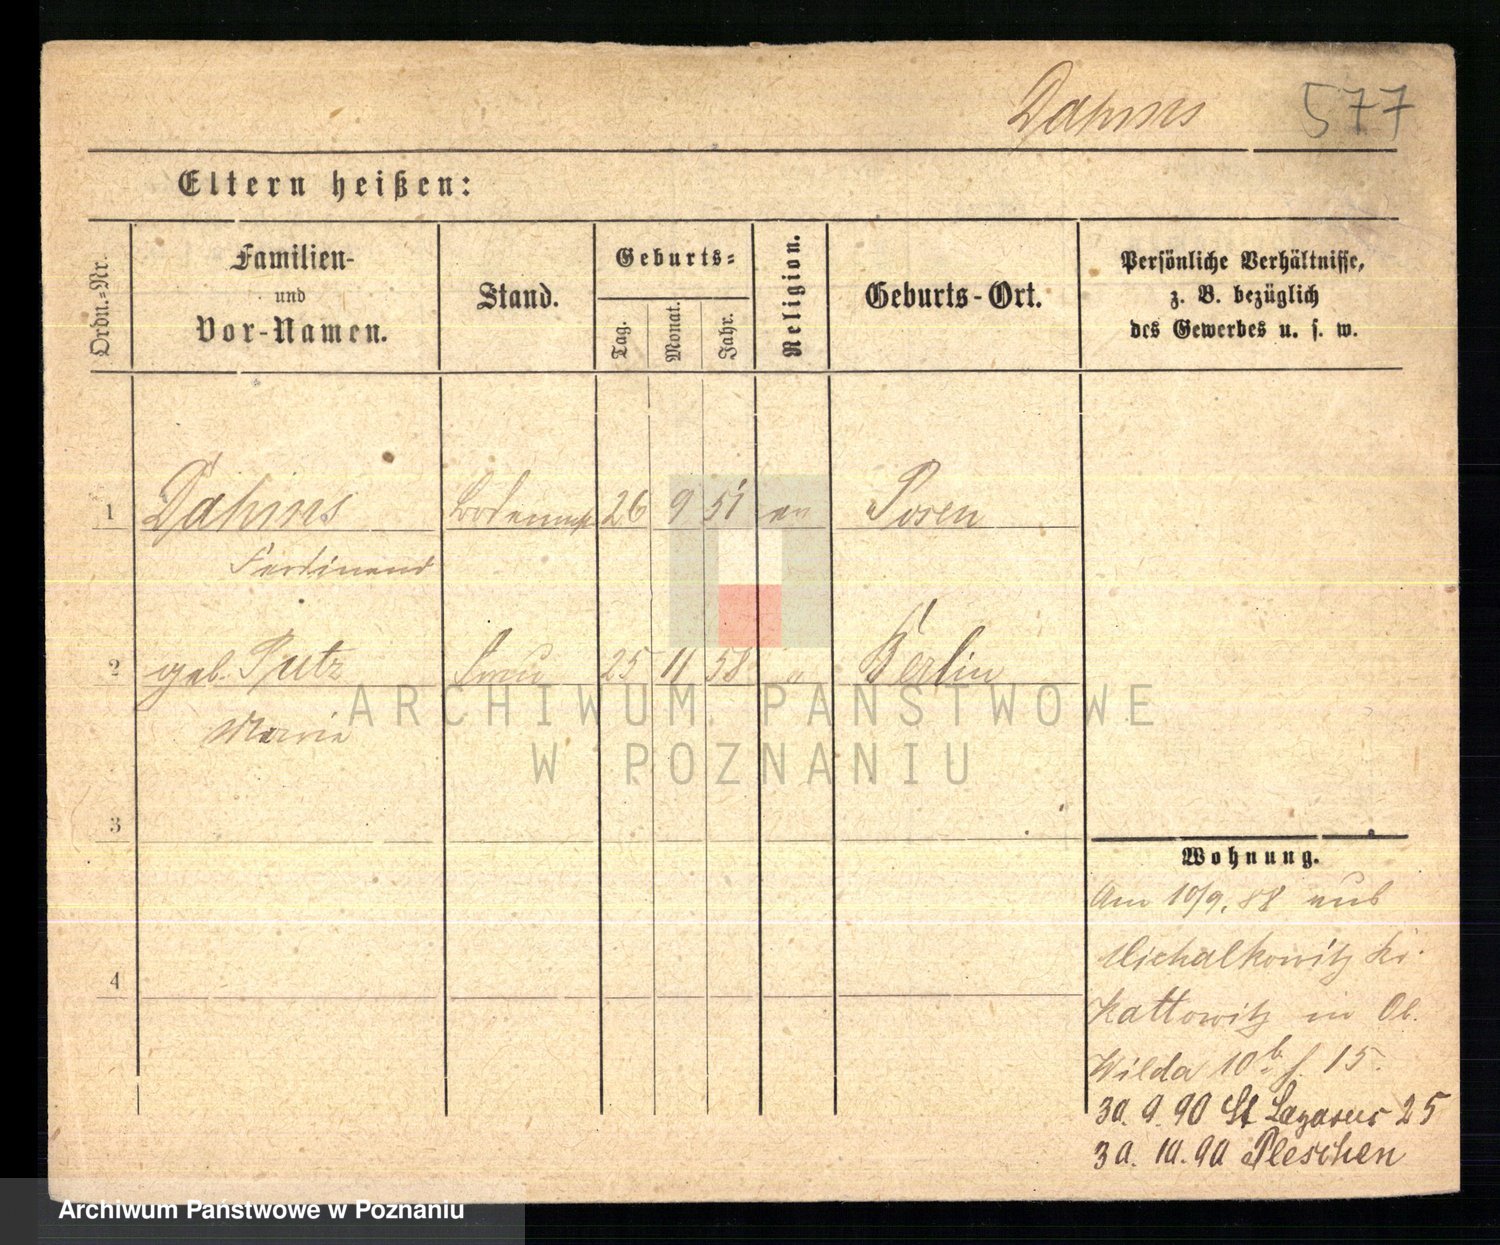 Dahms 577
Eltern heißen:
Ordn.-Nr.
Familien-
und
Vor-Namen.
Stand.
Geburts-
Tag.
Monat.
Jahr.
Religion.
Geburts-Ort.
Persönliche Verhältnisse,
z. B. bezüglich
des Gewerbes u. s. w.
1 Dahms 26 9 51 Posen
Ferdinand
2 geb. Putz Frau 25 11 58 " Berlin
Marie
3
4
Wohnung.
Am 10/9. 88 aus
Michalkowitz Kr.
Kattowitz in Ob.
Wilda 10b f. 15.
30. 9. 90 St Lazarus 25
30. 10. 90 Pleschen
ARCHIWUM PAŃSTWOWE
W POZNANIU
Archiwum Państwowe w Poznaniu